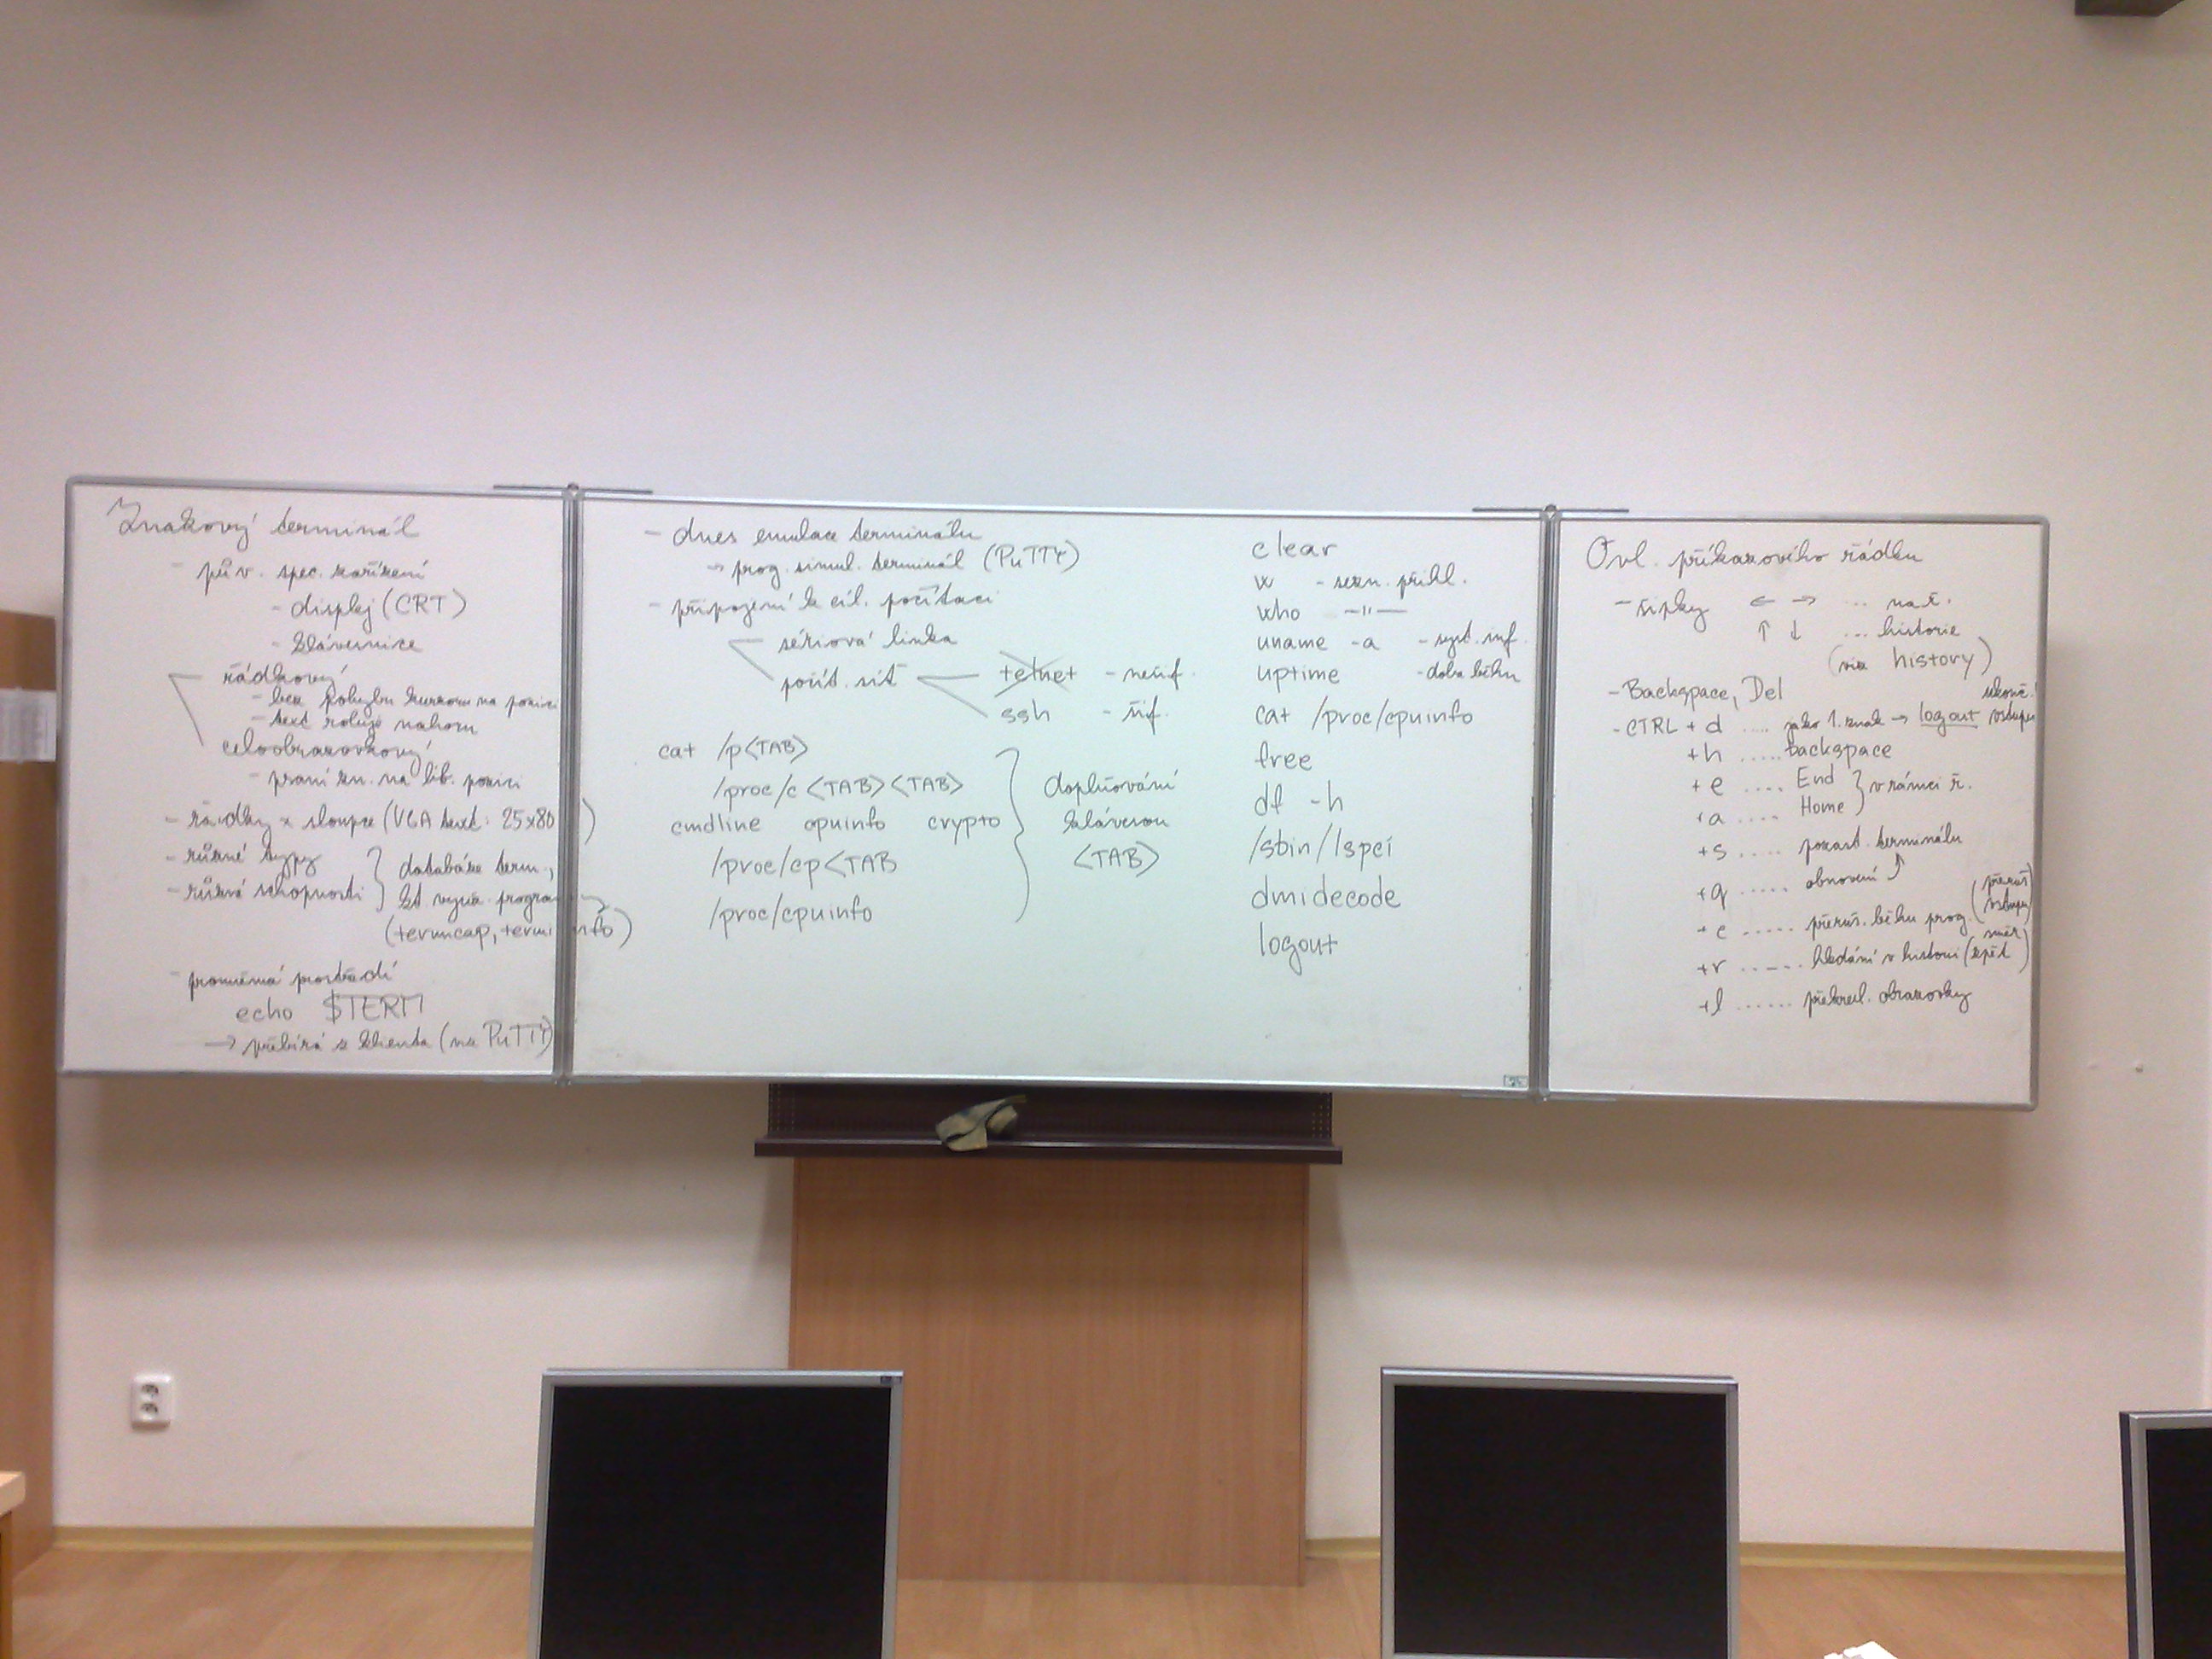 Znakový terminál
- pův. spec. zařízení
- displej (CRT)
- klávesnice
řádkový
- bez pohybu kurzoru na pozici
- text roluje nahoru
celoobrazovkový
- psaní zn. na lib. pozici
- řádky x sloupce (VGA text: 25x80)
- různé typy
- různé schopnosti
databáze term.,
kt. využ. programy
(termcap, terminfo)
- proměnná prostředí
echo $TERM
→ přebírá z klienta (viz PuTTY)
- dnes emulace terminálu
→ prog. simul. terminál (PuTTY)
- připojení k cíl. počítači
sériová linka
počít. síť
telnet - nešif.
ssh - šif.
cat /p<TAB>
/proc/c<TAB><TAB>
cmdline cpuinfo crypto
/proc/cp<TAB
/proc/cpuinfo
doplňování
klávesou
<TAB>
clear
w - sezn. přihl.
who —"—
uname -a - syst. inf.
uptime - doba běhu
cat /proc/cpuinfo
free
df -h
/sbin/lspci
dmidecode
logout
Ovl. příkazového řádku
- šipky ← → ... na ř.
↑ ↓ ... historie
(viz history)
- Backspace, Del
- CTRL + d ..... jako 1. znak → logout ukonč. vstupu
+h ..... backspace
+e .... End
+a .... Home
} v rámci ř.
+s ..... pozast. terminálu
+q ..... obnovení
+c ..... přeruš. běhu prog. (přeruš. vstupu)
+r ...... hledání v historii (směr zpět)
+l ...... překresl. obrazovky